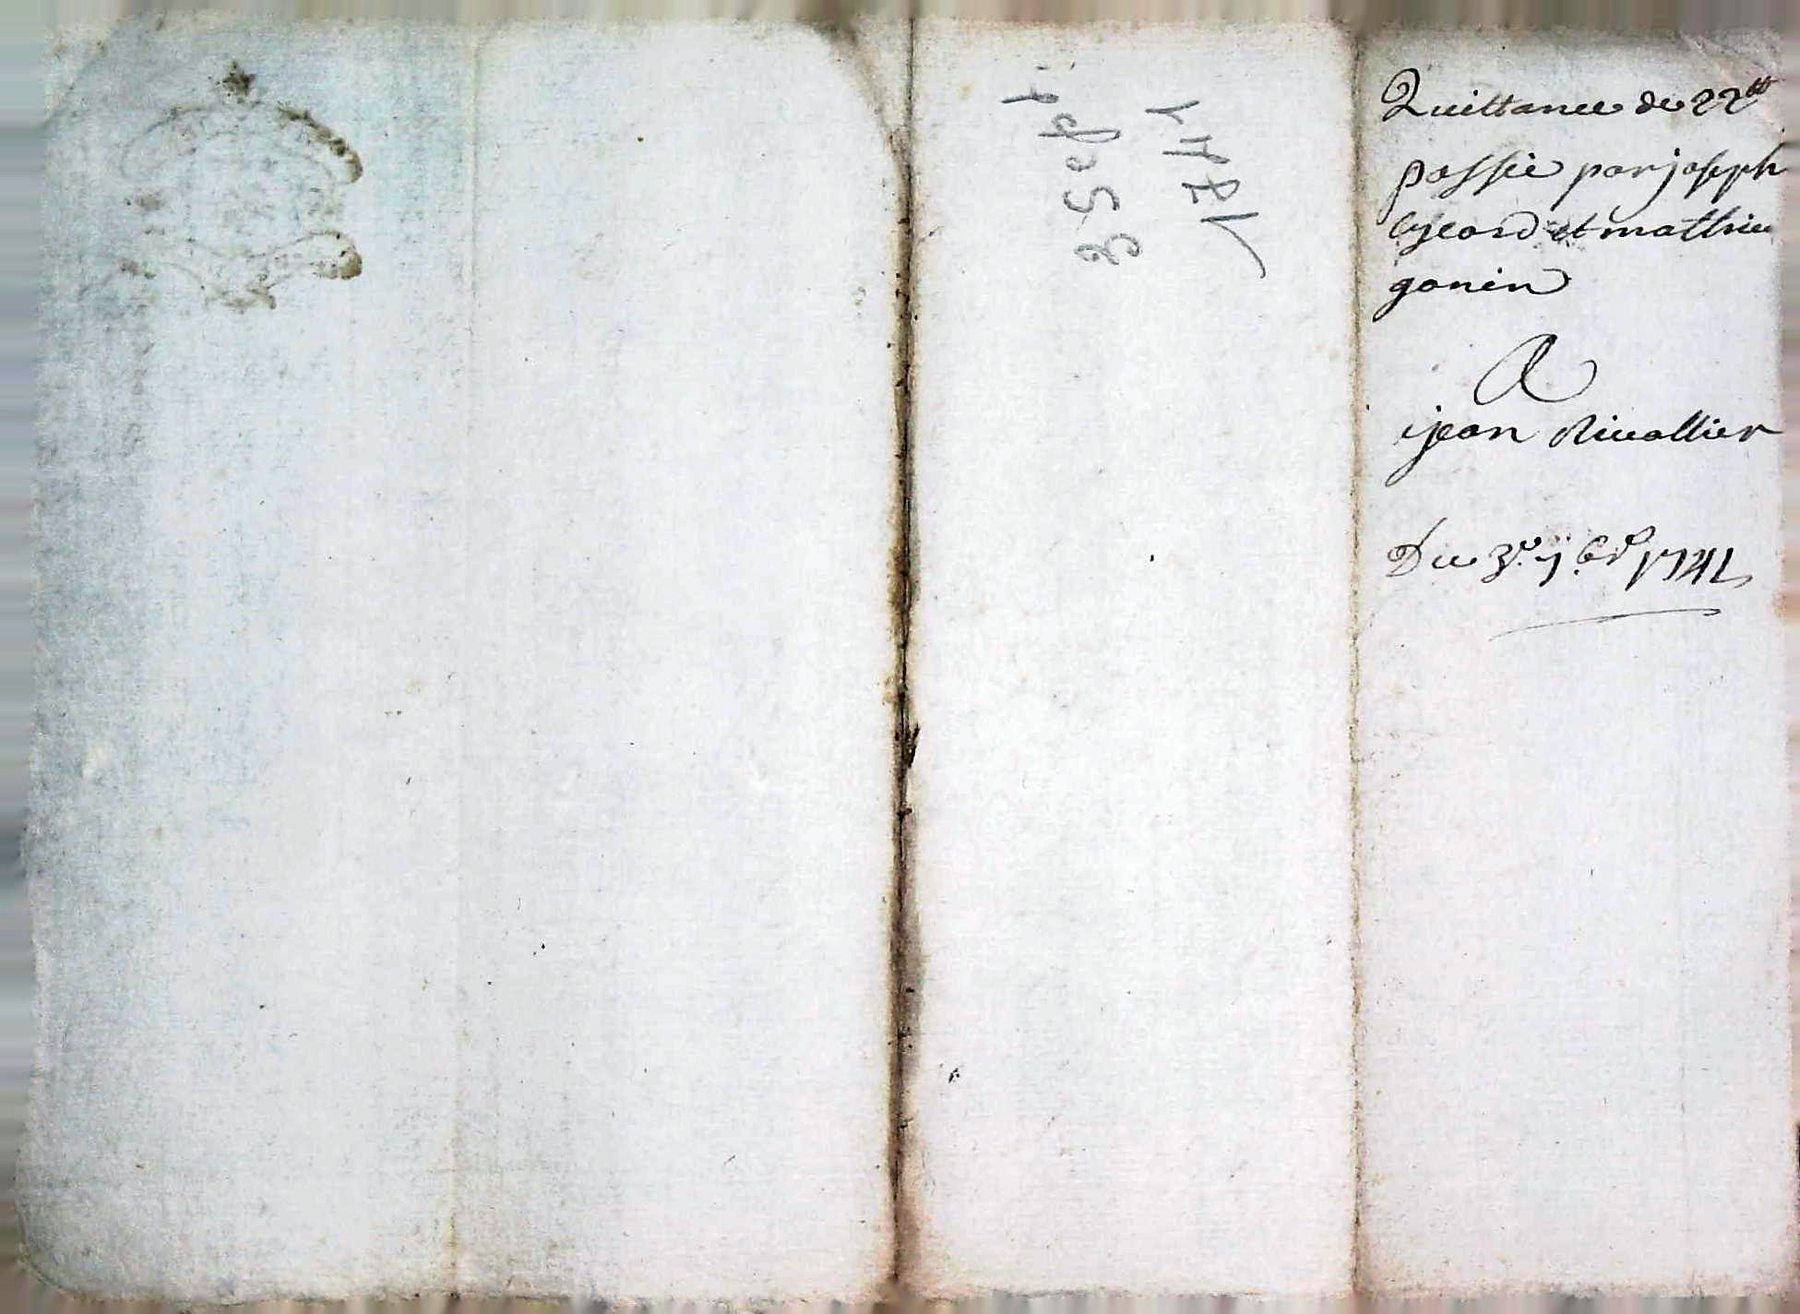 3 Sept
1741
Quittance de 22tt
passée par joseph
et mathieu
gonin
A
jean Rivallier
Du 3e 7bre 1741